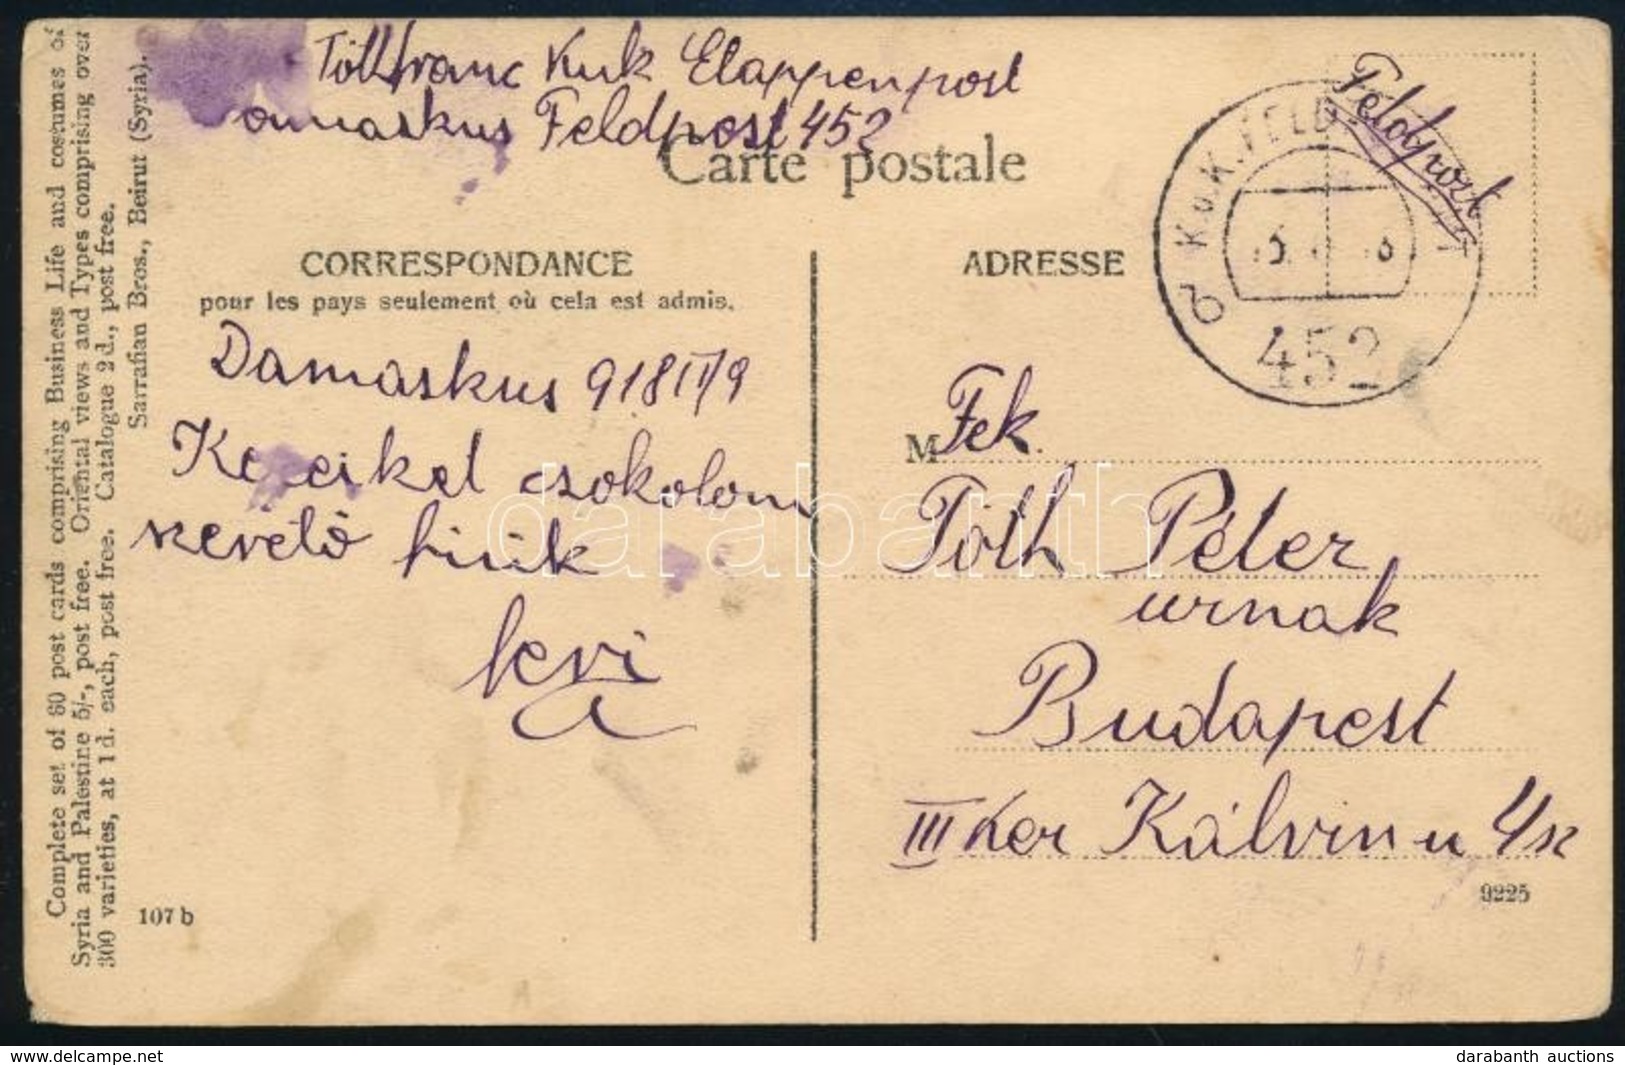 Tóth Ferenc Kuk Etappenpost
Feldpost 452
Carte postale
Feldpost
K.u.K. FELDPOST
452
CORRESPONDANCE
pour les pays seulement où cela est admis.
Damaskus 918 II/9
csokolom
szerető fiuk
ADRESSE
M Tek.
Tóth Péter
urnak
Budapest
III Ker Kálvin u 4 sz
9225
107 b
Complete set of 60 post cards comprising Business Life and costumes of
Syria and Palestine 5/-, post free. Oriental views and Types comprising over
300 varieties, at 1 d. each, post free. Catalogue 2 d., post free.
Sarrafian Bros., Beirut (Syria).
darabanth
www.delcampe.net
darabanth auctions